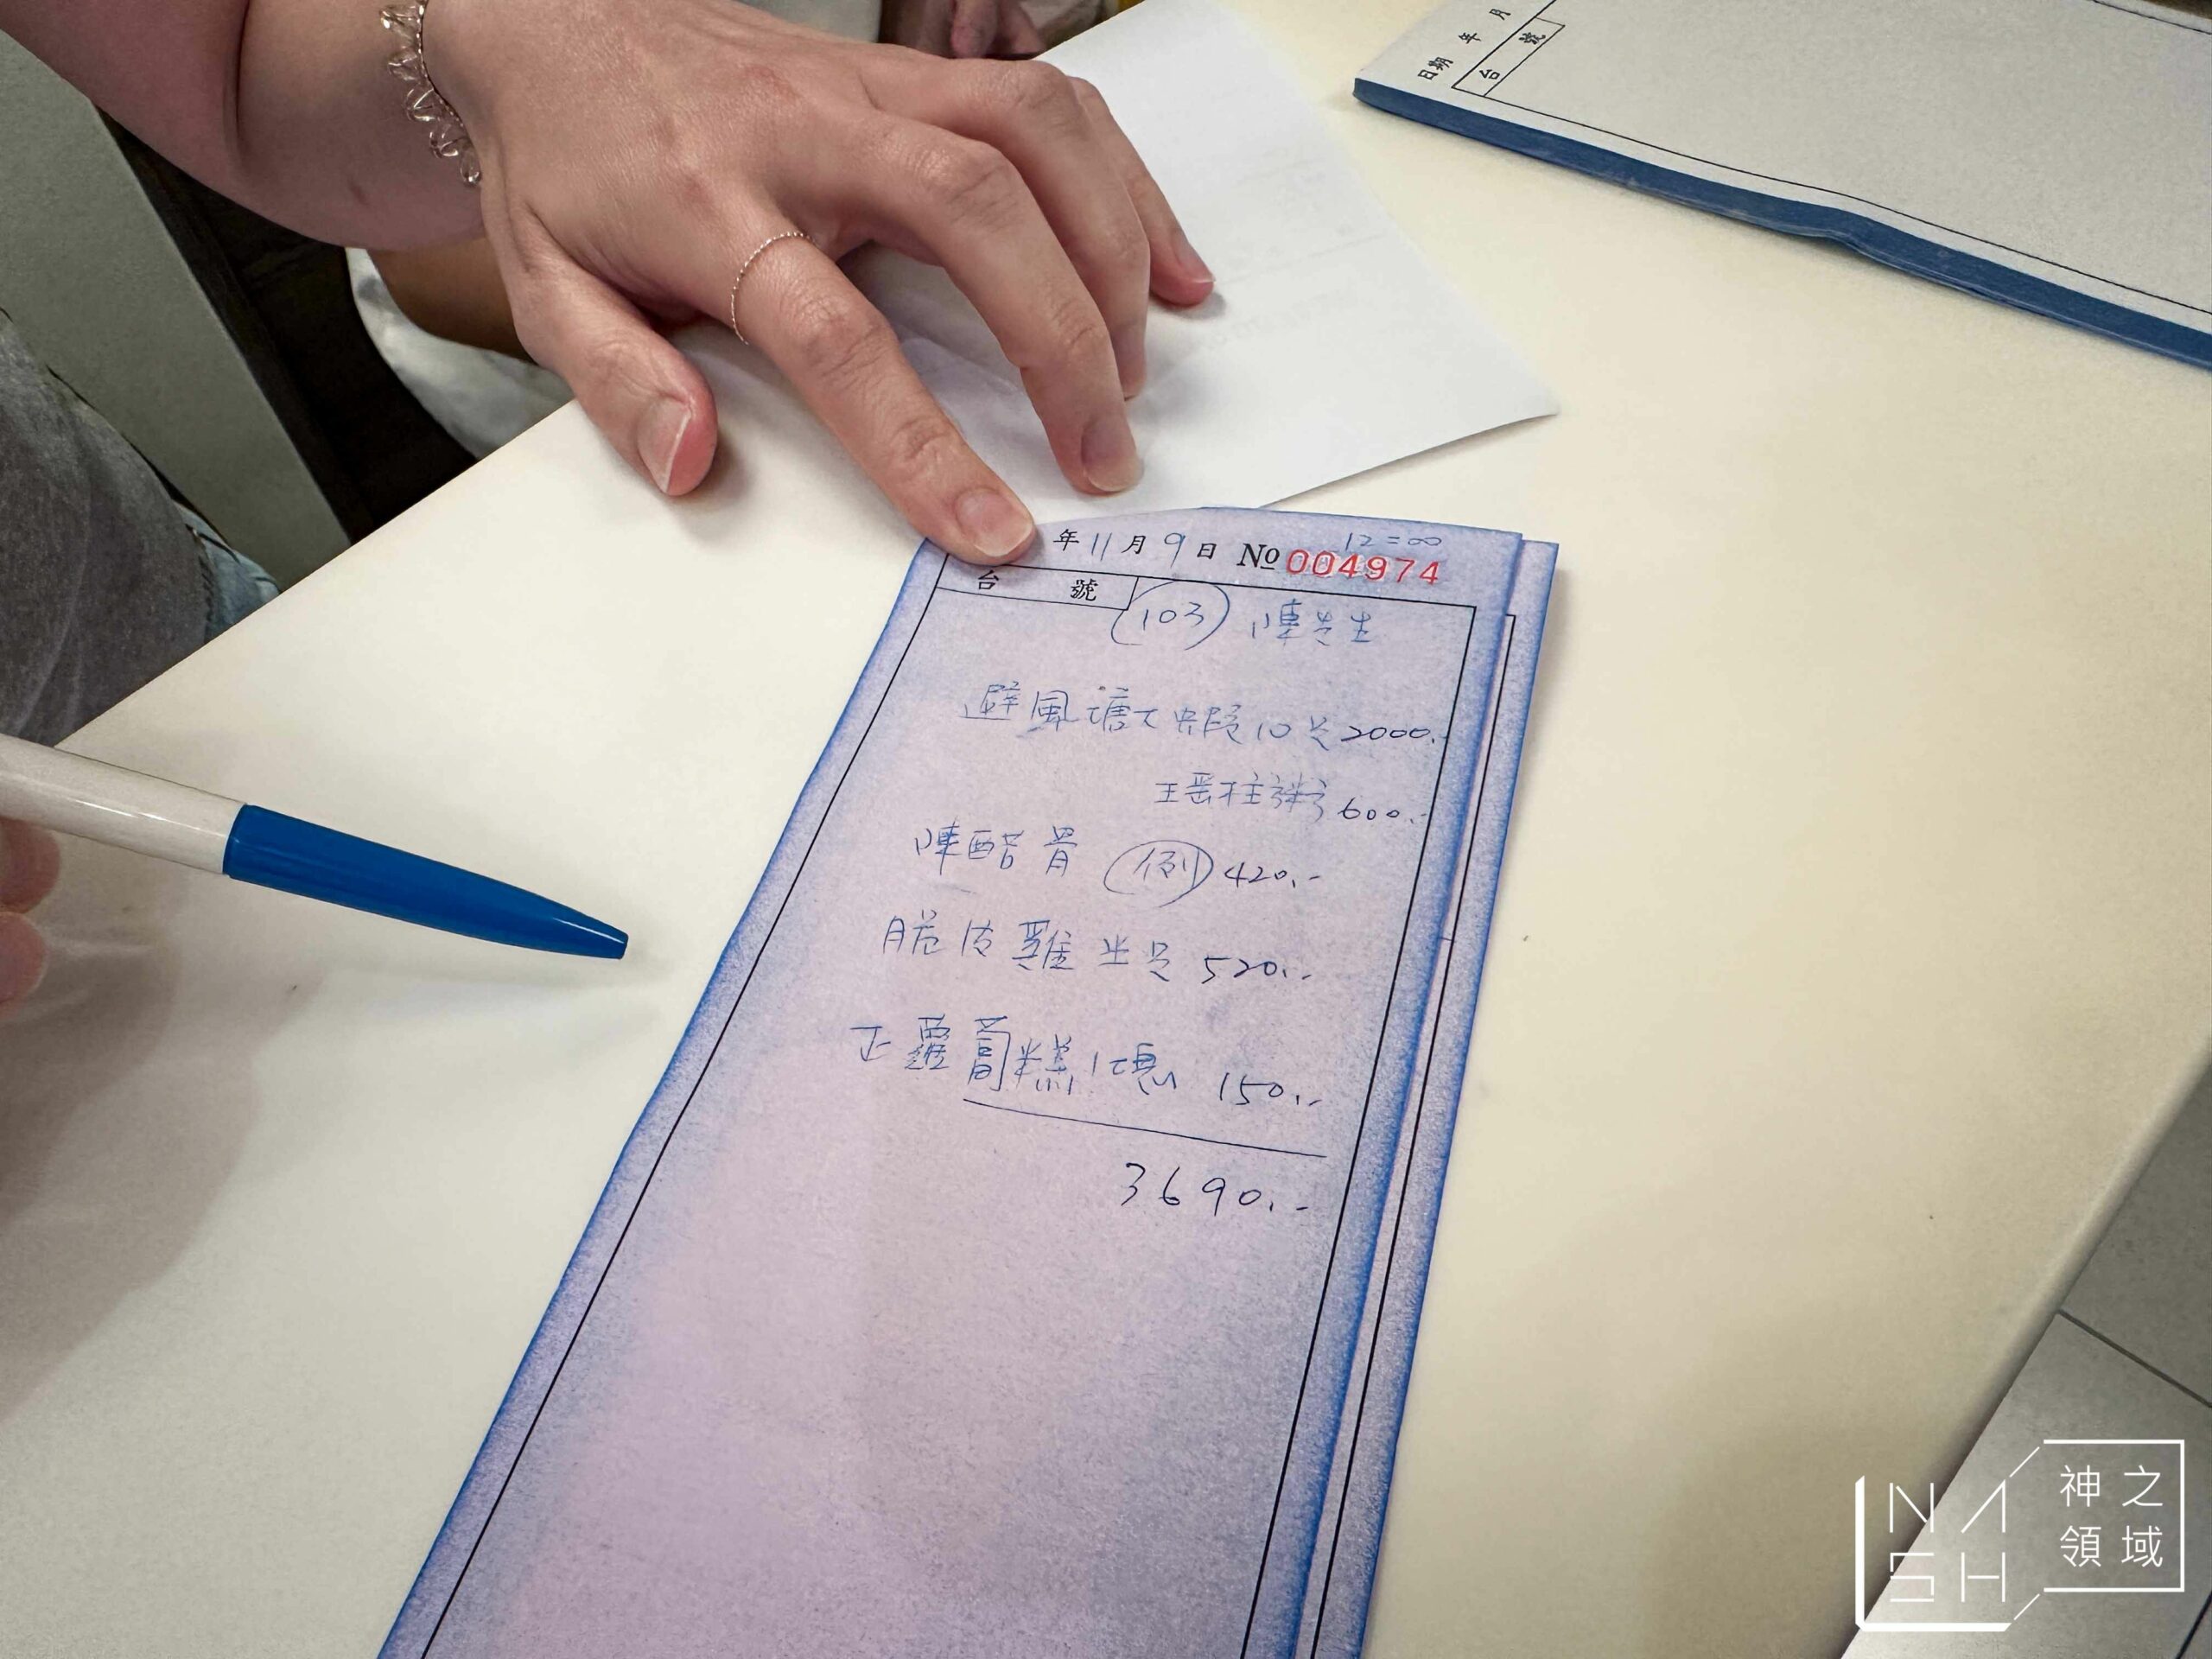 日期 年 月
台 號
年 11 月 9 日 No 004974
12=00
台 號
103 陳先生
避風塘大蝦10隻 2000.-
瑤柱粥 600.-
陳醋骨 例 420.-
脆皮雞半隻 520.-
正蘿蔔糕1 150.-
3690.-
NASH
神之
領域